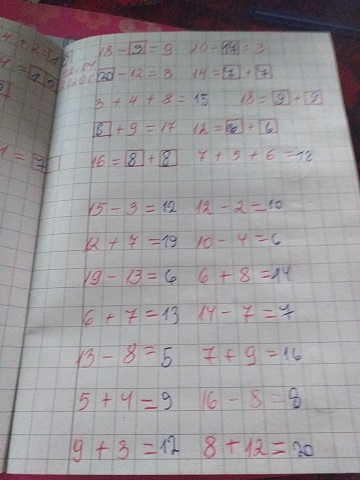 18 - 9 = 9 20 - 17 = 3
20 - 12 = 8 14 = 7 + 7
3 + 4 + 8 = 15 18 = 9 + 9
8 + 9 = 17 12 = 6 + 6
16 = 8 + 8 7 + 5 + 6 = 18
15 - 3 = 12 12 - 2 = 10
12 + 7 = 19 10 - 4 = 6
19 - 13 = 6 6 + 8 = 14
6 + 7 = 13 14 - 7 = 7
13 - 8 = 5 7 + 9 = 16
5 + 4 = 9 16 - 8 = 8
9 + 3 = 12 8 + 12 = 20